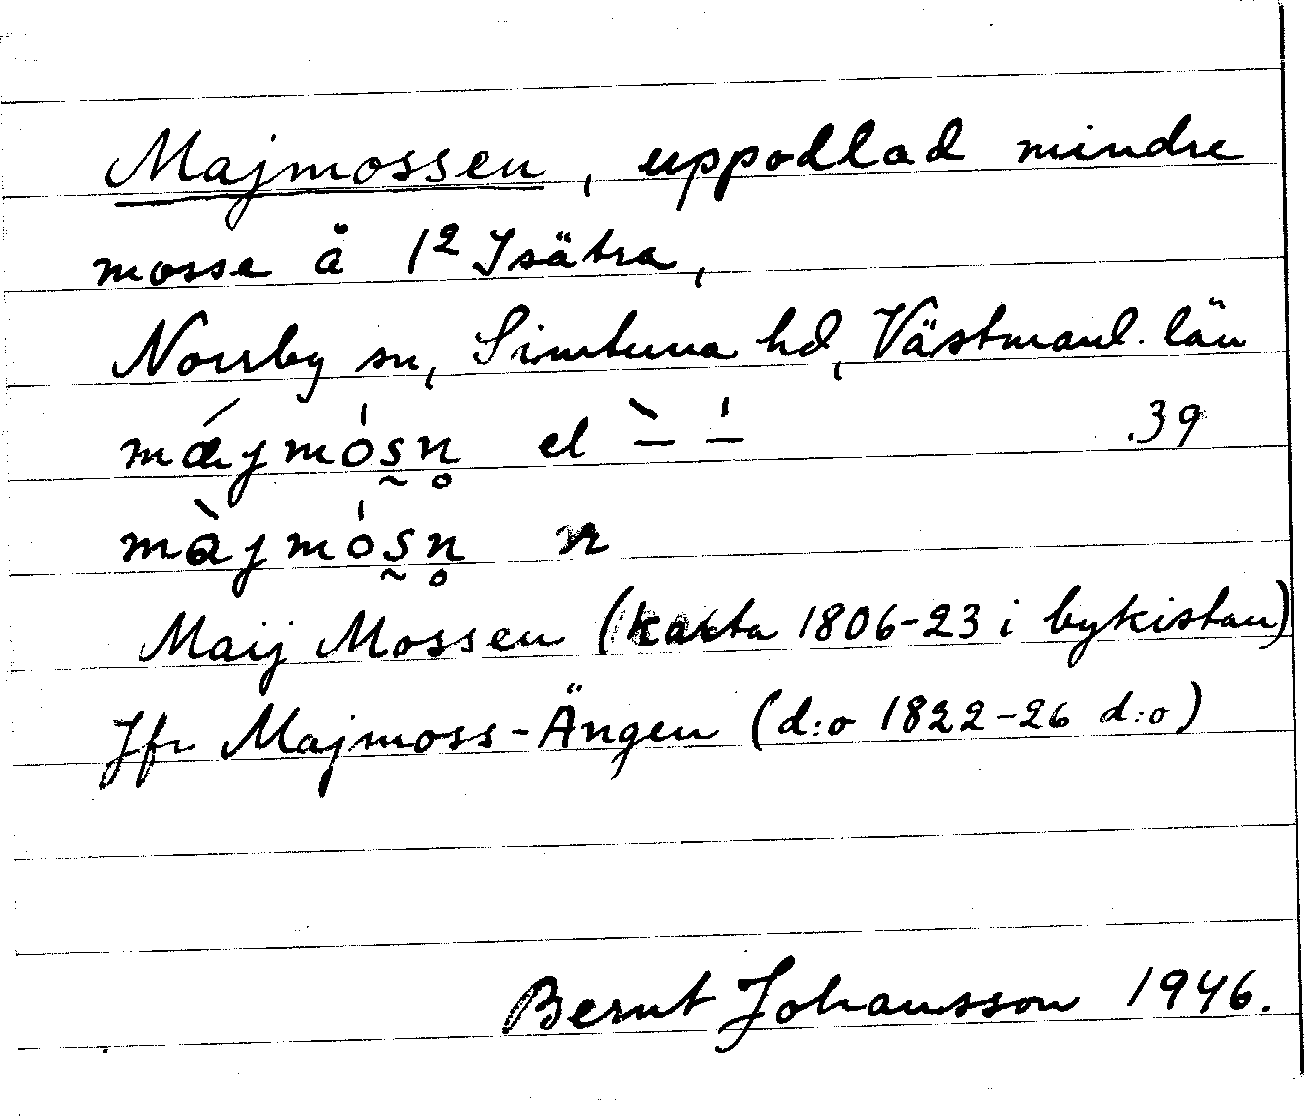 Majmossen, uppodlad mindre
mosse å 1² Isätra,
Norrby sn, Simtuna hd, Västmanl. län
mǽjmósn̥ el `– ́– .39
màjmósn̥ n
Maij Mossen (karta 1806-23 i bykistan)
Jfr Majmoss-Ängen (d:o 1822-26 d:o)
Bernt Johansson 1946.